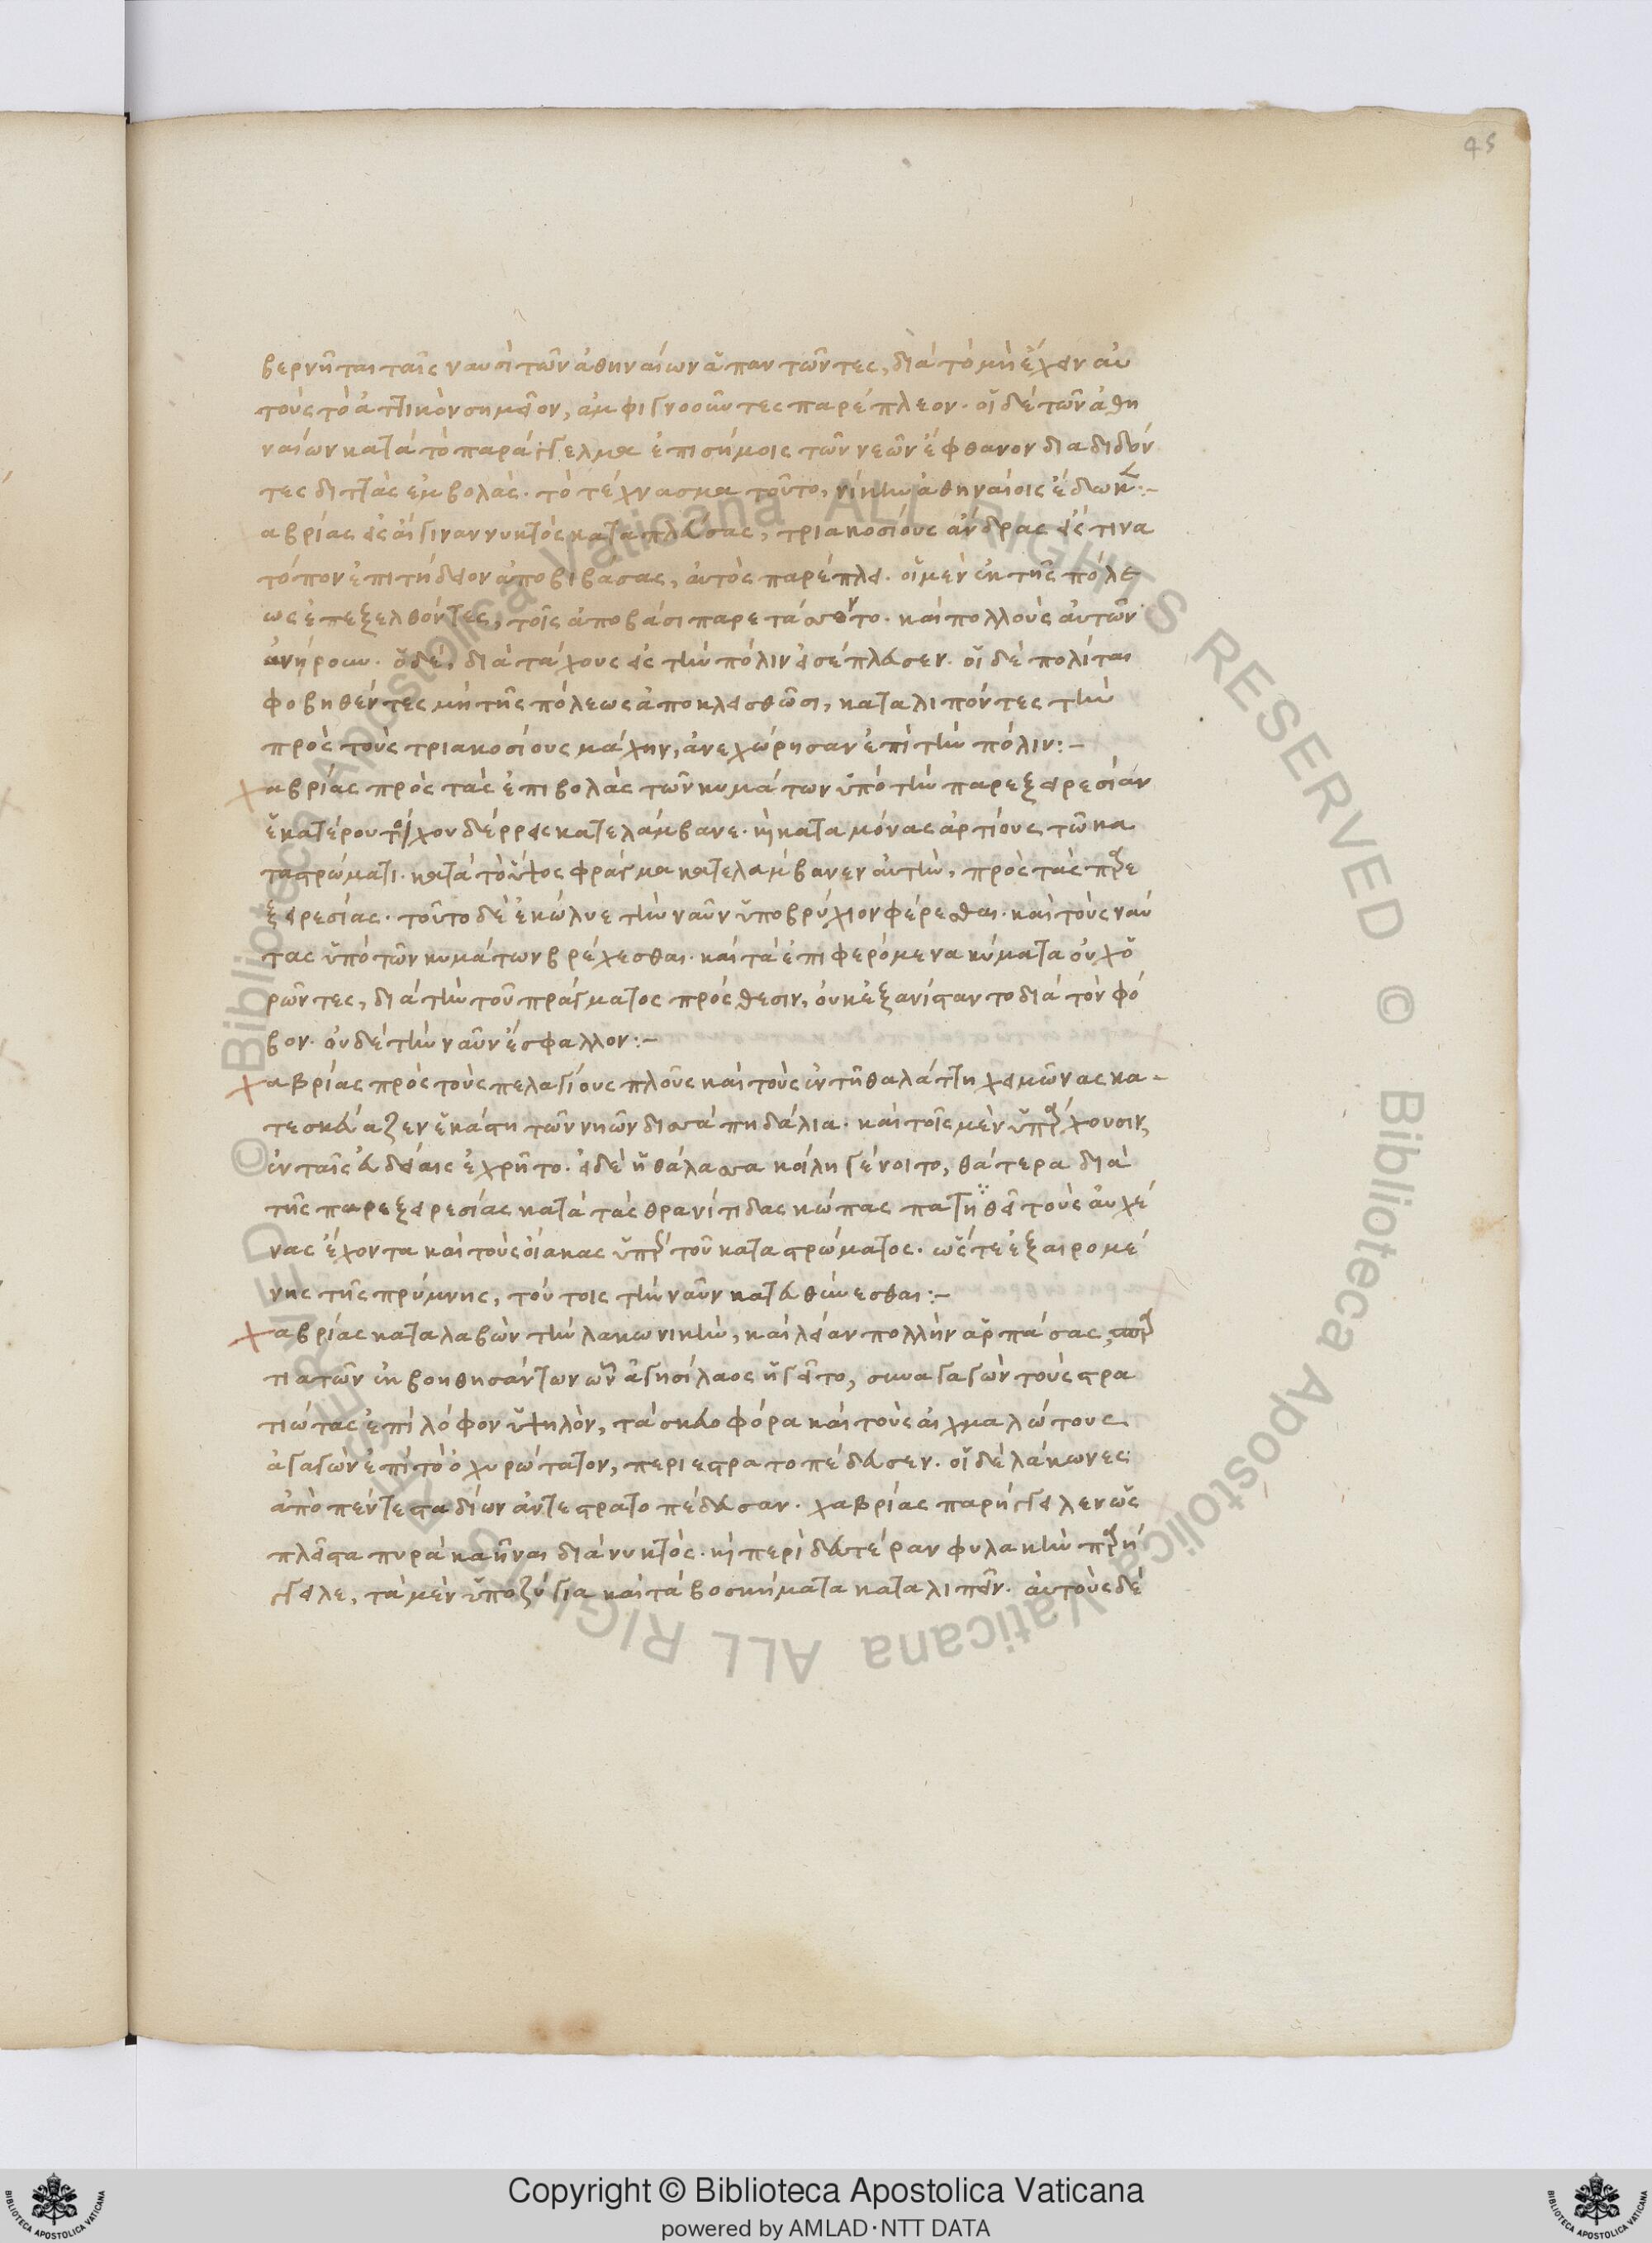 45
βερνῆται ταῖς ναυσὶ τῶν ἀθηναίων ἅπαντῶντες, διὰ τὸ μὴ ἔχειν αὐ
τοὺς τὸ ἀττικὸν σημεῖον, ἀμφιγνοοῦντες παρέπλεον. οἱ δὲ τῶν ἀθη
ναίων κατὰ τὸ παράγγελμα ἐπισήμοις τῶν νεῶν ἔφθανον διαδιδόν
τες διττὰς ἐμβολάς. τὸ τέχνασμα τοῦτο, νίκην ἀθηναίοις ἔδωκε:-
αβρίας εἰς αἴγιναν νυκτὸς καταπλεύσας, τριακοσίους ἄνδρας εἴς τινα
τόπον ἐπιτήδειον ἀποβιβασας, αὐτὸς παρέπλει. οἱ μὲν ἐκ τῆς πόλε
ως ἐπεξελθόντες, τοῖς ἀποβᾶσι παρετάσσοντο. καὶ πολλοὺς αὐτῶν
ἀνήρουν. ὁ δὲ, διὰ τάχους εἰς τὴν πόλιν εἰσέπλευσεν. οἱ δὲ πολῖται
φοβηθέντες μὴ τῆς πόλεως ἀποκλεισθῶσι, καταλιπόντες τὴν
πρὸς τοὺς τριακοσίους μάχην, ἀνεχώρησαν ἐπὶ τὴν πόλιν:-
Χαβρίας πρὸς τὰς ἐπιβολὰς τῶν κυμάτων ὑπὸ τὴν παρεξειρεσίαν
ἑκατέρου τοίχου δέρρεις κατελάμβανε. καὶ κατα μόνας ἀρτίους τῶ κα
ταστρώματι. κατὰ τὸ ὕψος φράγμα κατελάμβανεν αὐτὴν, πρὸς τὰς παρε
ξειρεσίας. τοῦτο δὲ ἐκώλυε τὴν ναῦν ὑποβρύχιον φέρεσθαι. καὶ τοὺς ναύ
τας ὑπὸ τῶν κυμάτων βρέχεσθαι. καὶ τὰ ἐπιφερόμενα κύματα οὐχ ὁ
ρῶντες, διὰ τὴν τοῦ πράγματος πρόσθεσιν, οὐκ ἐξανίσταντο διὰ τὸν φό
βον. οὐδὲ τὴν ναῦν ἔσφαλλον:-
Χαβρίας πρὸς τοὺς πελαγίους πλοῦς καὶ τοὺς ἐν τῇ θαλάττῃ χειμῶνας κα-
τεσκεύαζεν ἑκάστῃ τῶν νηῶν δισσὰ πηδάλια. καὶ τοῖς μὲν ὑπάρχουσιν,
ἐν ταῖς εὐδείαις ἐχρῆτο. εἰ δὲ ἡ θάλασσα κοίλη γένοιτο, θάτερα διὰ
τῆς παρεξειρεσίας κατὰ τὰς θρανίτιδας κώπας πατῇθει τοὺς αὐχέ
νας ἔχοντα καὶ τοὺς οἴακας ὑπὲρ τοῦ καταστρώματος. ὥστε ἐξαιρομέ
νης τῆς πρύμνης, τούτοις τὴν ναῦν κατευθύνεσθαι:-
Χαβρίας καταλαβὼν τὴν λακωνικὴν, καὶ λείαν πολλὴν ἁρπάσας,
τιατῶν ἐκβοηθησάντων ὧν ἀγησίλαος ἡγεῖτο, συναγαγὼν τοὺς στρα
τιώτας ἐπὶ λόφον ὑψηλὸν, τὰ σκευοφόρα καὶ τοὺς αἰχμαλώτους
ἀγαγὼν ἐπὶ τὸ ὀχυρώτατον, περιεστρατοπέδευσεν. οἱ δὲ λάκωνες
ἀπὸ πέντε σταδίων ἀντεστρατοπέδευσαν. χαβρίας παρήγγειλεν ὡς
πλεῖστα πυρὰ καῆναι διὰ νυκτός. καὶ περὶ δευτέραν φυλακὴν παρή
γγειλε, τὰ μὲν ὑποζύγια καὶ τὰ βοσκήματα καταλιπεῖν. αὐτοὺς δὲ
© Biblioteca Apostolica Vaticana ALL RIGHTS RESERVED
© Biblioteca Apostolica Vaticana ALL RIGHTS RESERVED
Copyright © Biblioteca Apostolica Vaticana
powered by AMLAD·NTT DATA
BIBLIOTECA APOSTOLICA VATICANA
BIBLIOTECA APOSTOLICA VATICANA